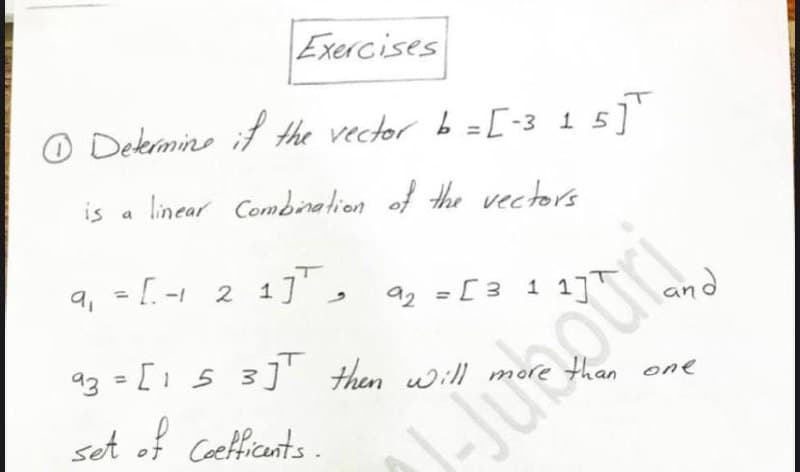 Exercises
① Determine if the vector b = [-3 1 5]ᵀ
is a linear Combination of the vectors
a₁ = [-1 2 1]ᵀ, a₂ = [3 1 1]ᵀ and
a₃ = [1 5 3]ᵀ then will more than one
set of Coefficents.
Al-Jubouri